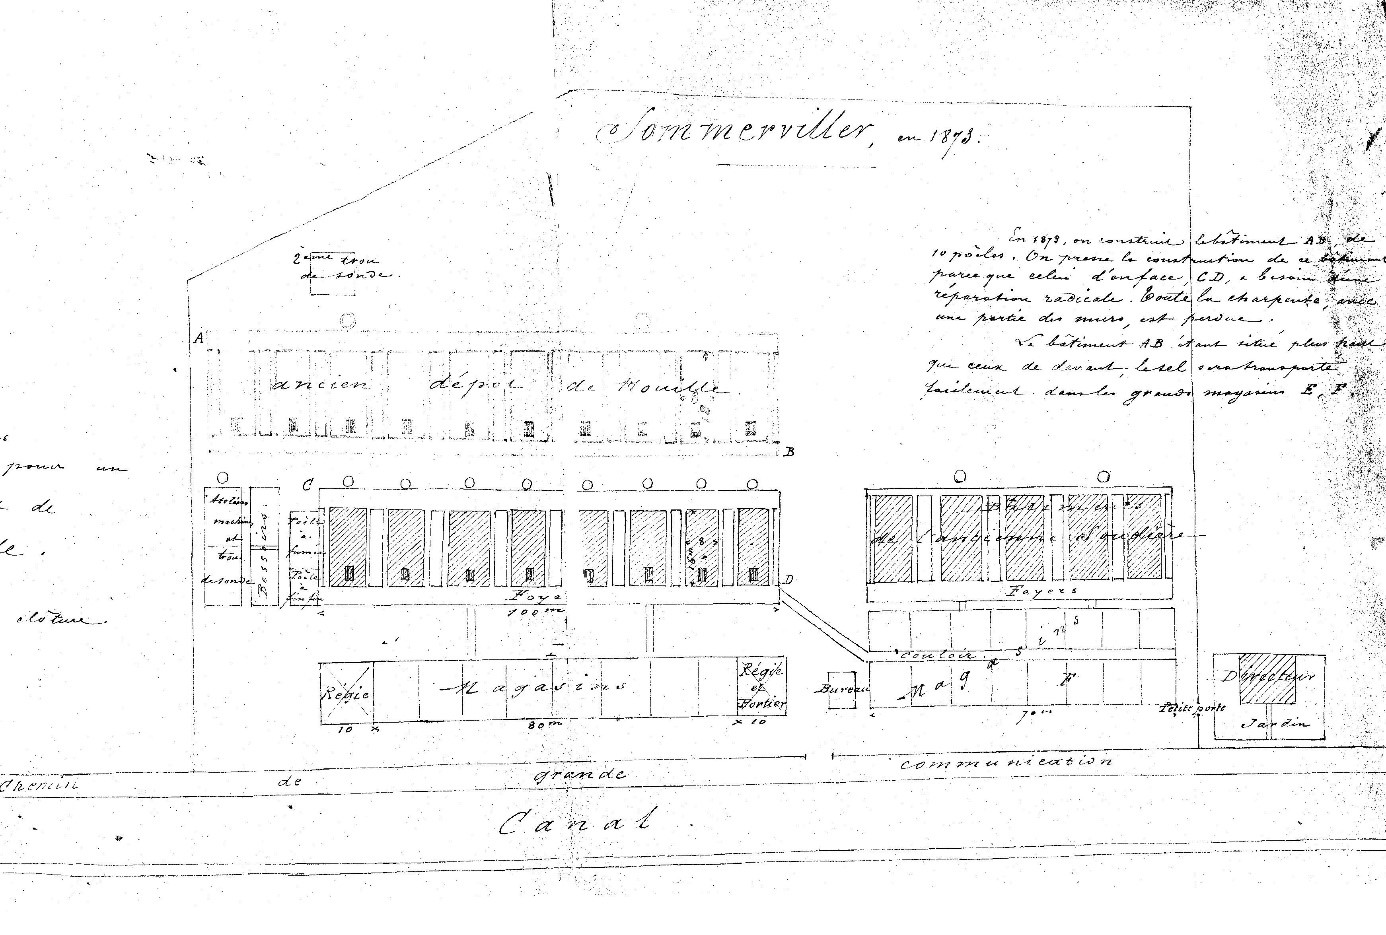 Sommerviller, en 1873.
En 1873, on construit le bâtiment AB, de
10 poêles. On presse la construction de ce bâtiment
parce que celui d'enface, CD, a besoin d'une
réparation radicale. Toute la charpente, avec
une partie des murs, est perdue.
Le bâtiment AB étant situé plus haut
que ceux de devant, le sel sera transporté
facilement dans les grands magasins E, F.
2ème trou
de sonde.
A
ancien dépôt de Houille
B
C
Ateliers
machine
et
trou
de sonde
Poêle
à
Poêle
à
fin fin
D
Foye
100m
Bâtiments
de l'ancienne Soudière
Foyers
couloir
Magasins
F
70m
Régie
Magasins
Régie
et
Portier
10 x
80m
x 10
Bureau
Petite porte
Directeur
Jardin
pour un
de
clôture.
Chemin de grande communication
Canal